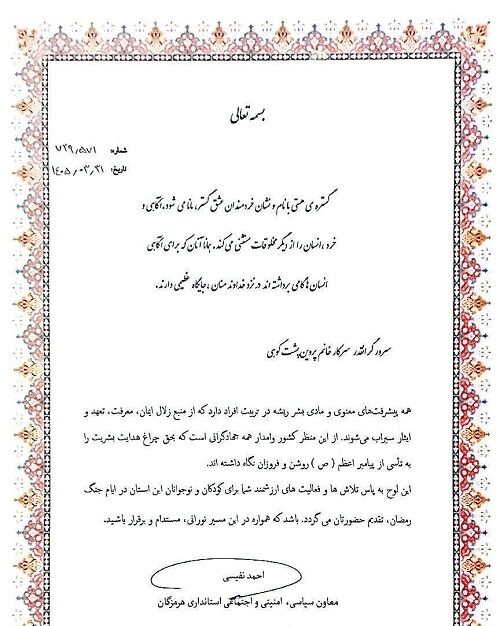 بسمه تعالی
شماره: ۷۲۹/۵۷۱
تاریخ: ۱۴۰۵/۰۳/۳۱
گستره ی هستی با نام و نشان خردمندان عشق گستر، مانا می شود. آگاهی و
خرد، انسان را از دیگر مخلوقات مستثنی می کند. همانا آنان که برای آگاهی
انسان ها گامی برداشته اند در نزد خداوند منان، جایگاه عظیمی دارند.
سرور گرانقدر سرکار خانم پروین پشت کوهی
همه پیشرفت‌های معنوی و مادی بشر ریشه در تربیت افراد دارد که از منبع زلال ایمان، معرفت، تعهد و
ایثار سیراب می‌شوند. از این منظر کشور وامدار همه جهادگرانی است که بحق چراغ هدایت بشریت را
به تأسی از پیامبر اعظم ( ص ) روشن و فروزان نگاه داشته اند.
این لوح به پاس تلاش ها و فعالیت های ارزشمند شما برای کودکان و نوجوانان این استان در ایام جنگ
رمضان، تقدیم حضورتان می گردد. باشد که همواره در این مسیر نورانی، مستدام و برقرار باشید.
احمد نفیسی
معاون سیاسی، امنیتی و اجتماعی استانداری هرمزگان